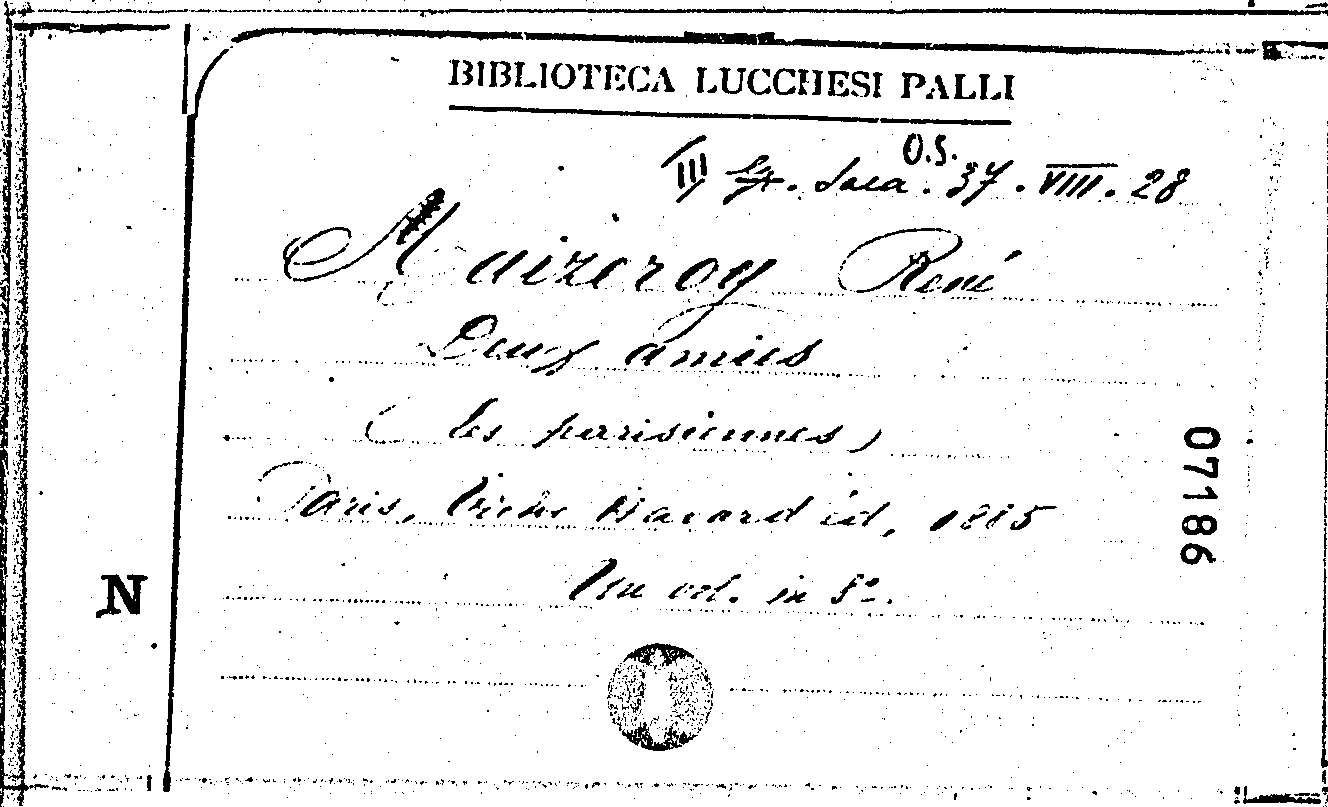 BIBLIOTECA LUCCHESI PALLI
O.S.
III Sala. 37. VIII. 28
Maizeroy René
Deux amies
(les parisiennes)
Paris, Victor Havard éd, 1885
Un vol. in 8º.
07186
N